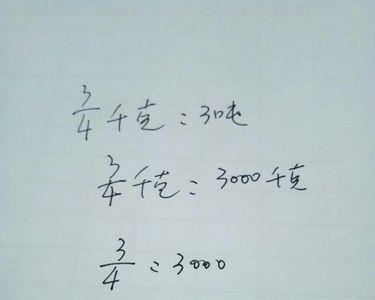 3/4千克=30吨
3/4千克=3000千克
3/4=3000